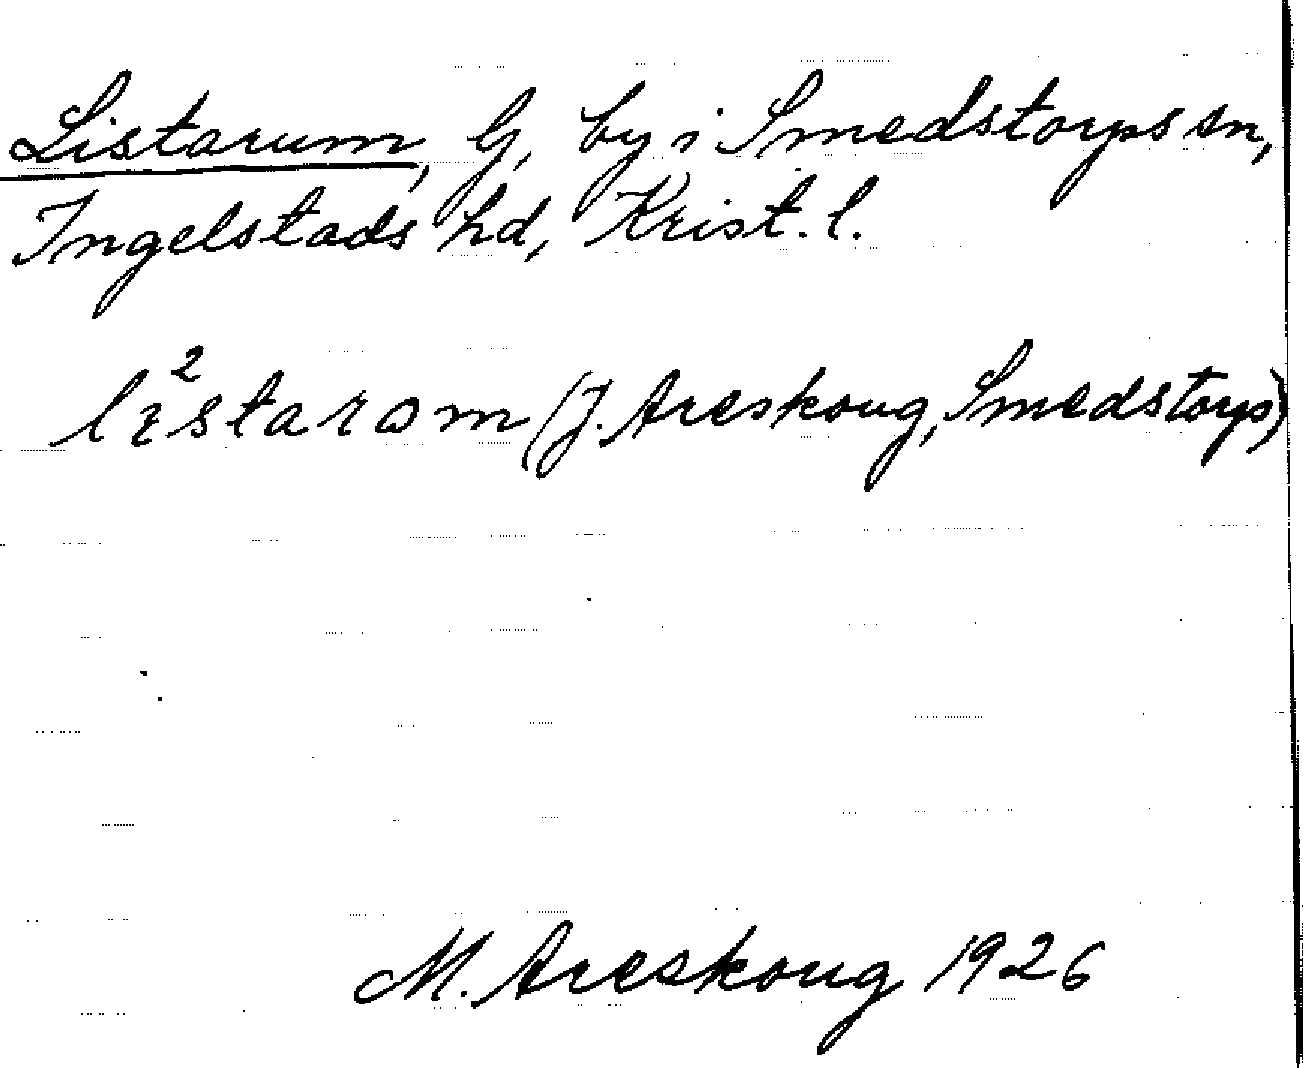 Listarum, G, by i Smedstorps sn,
Ingelstads hd, Krist. l.
lɩ²starom (J. Areskoug, Smedstorp)
M. Areskoug 1926